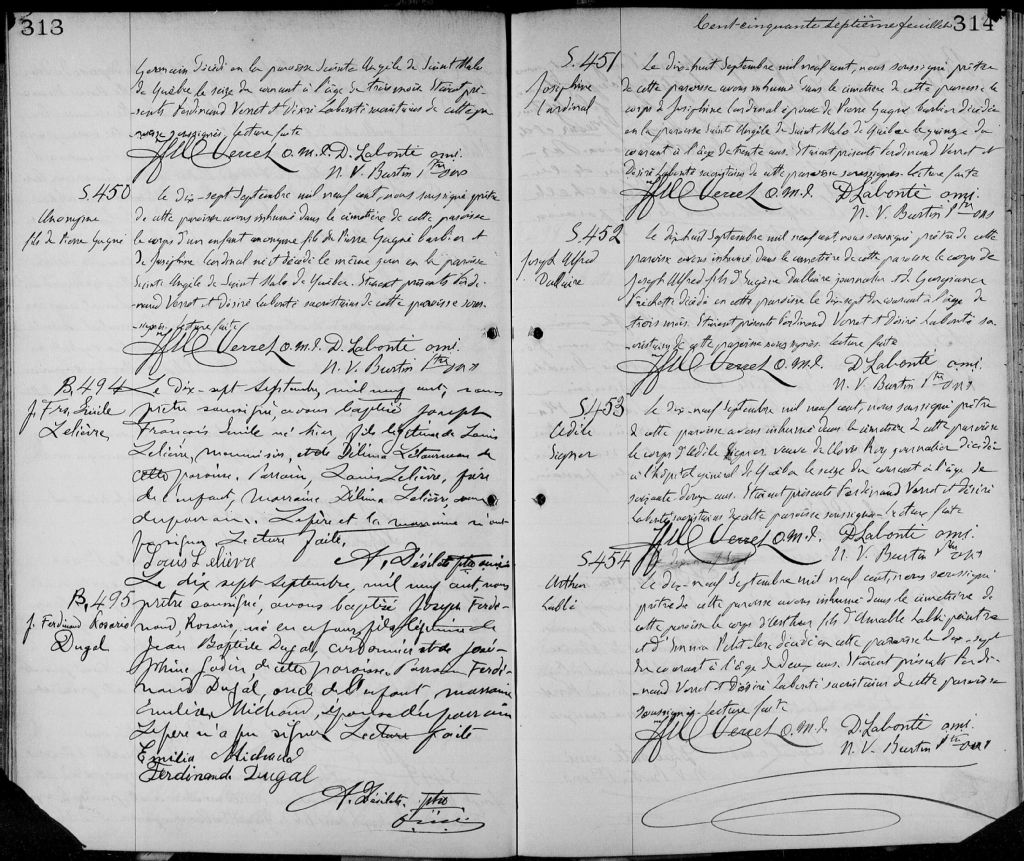 313
Germain décédé en la paroisse Sainte Angèle de Saint Malo
de Québec le seize du courant à l'âge de trois mois. Étaient pré-
sents Ferdinand Verret et Désiré Labonté sacristains de cette pa-
roisse soussignés. Lecture faite
Verret o.m.i. D. Labonté omi.
N. V. Burtin Ptre omi
S. 450
Anonyme
fils de Pierre Gagné
Le dix-sept Septembre mil neuf cent, nous soussigné prêtre
de cette paroisse avons inhumé dans le cimetière de cette paroisse
le corps d'un enfant anonyme fils de Pierre Gagné barbier et
de Joséphine Cardinal né et décédé le même jour en la paroisse
Sainte Angèle de Saint Malo de Québec. Étaient présents Ferdi-
nand Verret et Désiré Labonté sacristains de cette paroisse sous-
signés. Lecture faite
Verret o.m.i. D. Labonté omi.
N. V. Burtin Ptre omi
B. 494
J. Frs. Emile
Lelièvre
Le dix-sept septembre, mil neuf cent, nous
prêtre soussigné, avons baptisé Joseph
François Emile né hier, fils légitime de Louis
Lelièvre, menuisier, et de Délima Létourneau de
cette paroisse. Parrain, Louis Lelièvre, frère
de l'enfant, marraine Délima Lelièvre, soeur
du parrain. Le père et la marraine n'ont
pas signé. Lecture faite.
Louis Lelièvre
A. Désilets ptre omi
B. 495
J. Ferdinand Rosario
Dugal
Le dix sept septembre, mil neuf cent, nous
prêtre soussigné, avons baptisé Joseph Ferdi-
nand, Rosario, né ce jour, fils légitime de
Jean Baptiste Dugal, cordonnier et de José-
phine Godin de cette paroisse. Parrain Ferdi-
nand Dugal, oncle de l'enfant, marraine
Emilia Michaud, épouse du parrain
Le père n'a pu signer. Lecture faite
Emilia Michaud
Ferdinand Dugal
A. Désilets ptre
Cent-cinquante septième feuillet
314
S. 451
Joséphine
Cardinal
Le dix-huit Septembre mil neuf cent, nous soussigné prêtre
de cette paroisse avons inhumé dans le cimetière de cette paroisse le
corps de Joséphine Cardinal épouse de Pierre Gagné barbier décédée
en la paroisse Sainte Angèle de Saint Malo de Québec le quinze du
courant à l'âge de trente ans. Étaient présents Ferdinand Verret et
Désiré Labonté sacristains de cette paroisse soussignés. Lecture faite
Verret o.m.i. D Labonté omi.
N. V. Burtin Ptre omi
S. 452
Joseph Alfred
Dallaire
Le dix-huit Septembre mil neuf cent, nous soussigné prêtre de cette
paroisse avons inhumé dans le cimetière de cette paroisse le corps de
Joseph Alfred fils d'Eugène Dallaire journalier et de Georgianna
Fréchette décédé en cette paroisse le dix-sept du courant à l'âge de
trois mois. Étaient présents Ferdinand Verret et Désiré Labonté sa-
cristains de cette paroisse soussignés. Lecture faite
Verret o.m.i. D Labonté omi.
N. V. Burtin Ptre omi
S. 453
Adèle
Le dix-neuf Septembre mil neuf cent, nous soussigné prêtre
de cette paroisse avons inhumé dans le cimetière de cette paroisse
le corps d'Adèle veuve de Clovis Roy journalier décédée
à l'hôpital général de Québec le seize du courant à l'âge de
soixante-douze ans. Étaient présents Ferdinand Verret et Désiré
Labonté sacristains de cette paroisse soussignés. Lecture faite
Verret o.m.i. D Labonté omi.
N. V. Burtin Ptre omi
S. 454
Arthur
Labbé
Le dix-neuf Septembre mil neuf cent, nous soussigné
prêtre de cette paroisse avons inhumé dans le cimetière de
cette paroisse le corps d'Arthur fils d'Amable Labbé peintre
et d'Emma Petitclerc décédé en cette paroisse le dix-sept
du courant à l'âge de deux ans. Étaient présents Ferdi-
nand Verret et Désiré Labonté sacristains de cette paroisse
soussignés. Lecture faite
Verret o.m.i. D Labonté omi.
N. V. Burtin Ptre omi